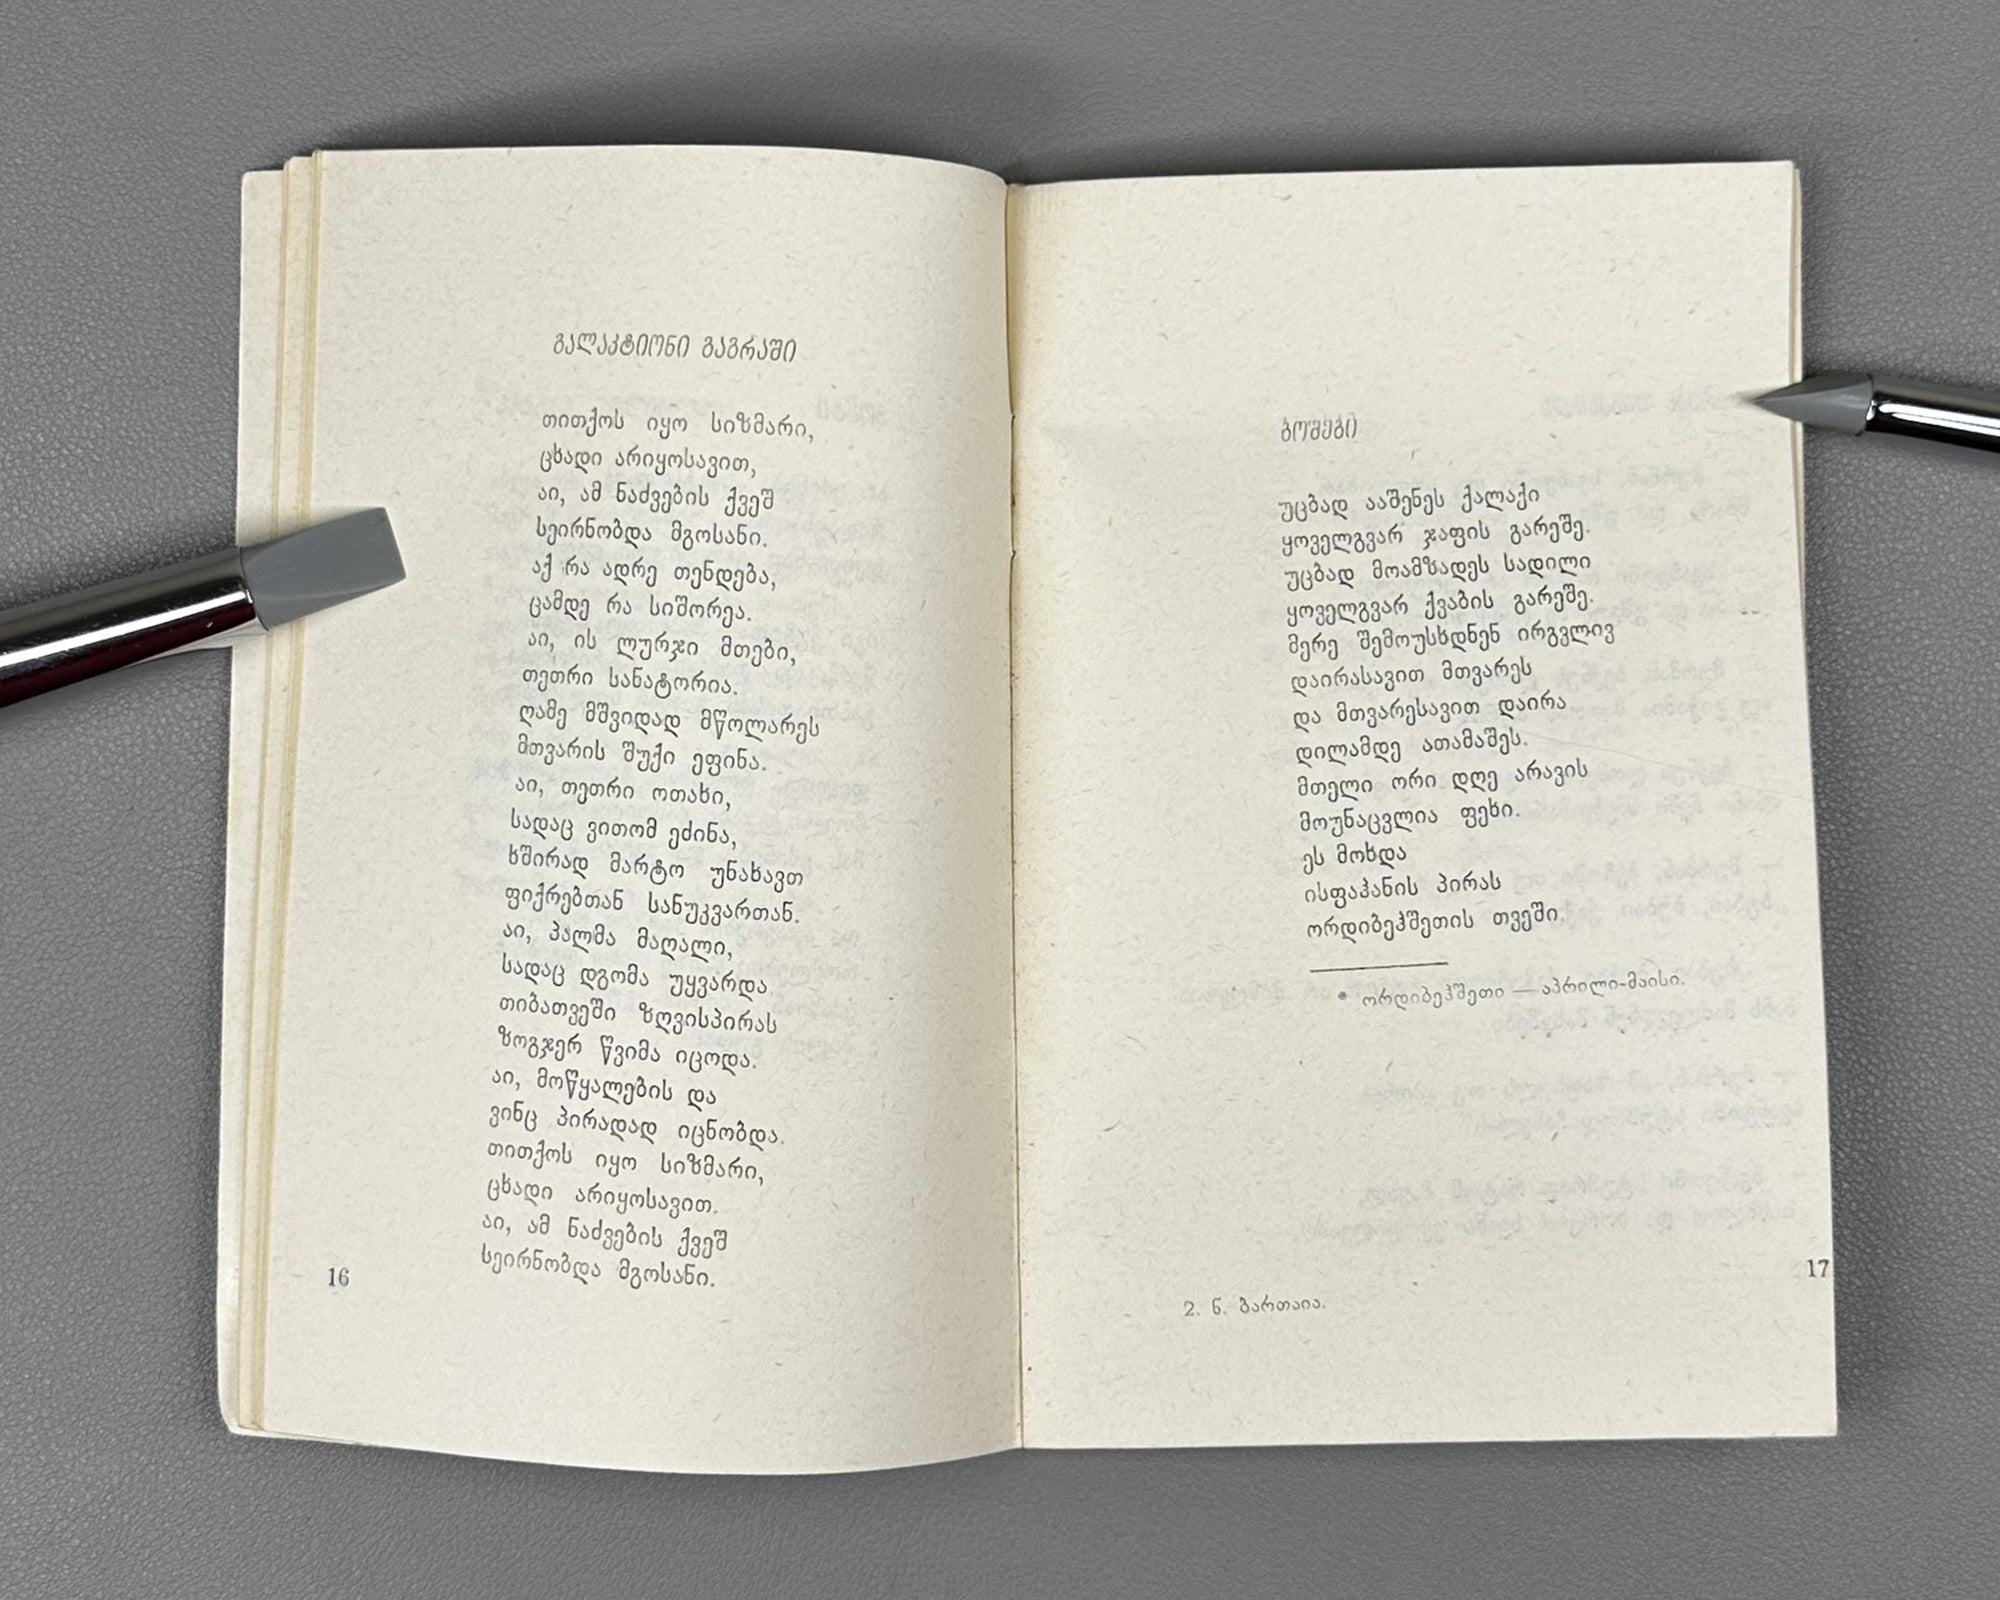 გალაკტიონი გაგრაში
თითქოს იყო სიზმარი,
ცხადი არიყოსავით,
აი, ამ ნაძვების ქვეშ
სეირნობდა მგოსანი.
აქ რა ადრე თენდება,
ცამდე რა სიშორეა.
აი, ის ლურჯი მთები,
თეთრი სანატორია.
ღამე მშვიდად მწოლარეს
მთვარის შუქი ეფინა.
აი, თეთრი ოთახი,
სადაც ვითომ ეძინა,
ხშირად მარტო უნახავთ
ფიქრებთან სანუკვართან.
აი, პალმა მაღალი,
სადაც დგომა უყვარდა
თიბათვეში ზღვისპირას
ზოგჯერ წვიმა იცოდა.
აი, მოწყალების და
ვინც პირადად იცნობდა.
თითქოს იყო სიზმარი,
ცხადი არიყოსავით.
აი, ამ ნაძვების ქვეშ
სეირნობდა მგოსანი.
16
ბოშები
უცბად ააშენეს ქალაქი
ყოველგვარ ჯაფის გარეშე.
უცბად მოამზადეს სადილი
ყოველგვარ ქვაბის გარეშე.
მერე შემოუსხდნენ ირგვლივ
დაირასავით მთვარეს
და მთვარესავით დაირა
დილამდე ათამაშეს.
მთელი ორი დღე არავის
მოუნაცვლია ფეხი.
ეს მოხდა
ისფაჰანის პირას
ორდიბეჰშეთის თვეში.
* ორდიბეჰშეთი — აპრილი-მაისი.
2. ნ. ბართაია.
17